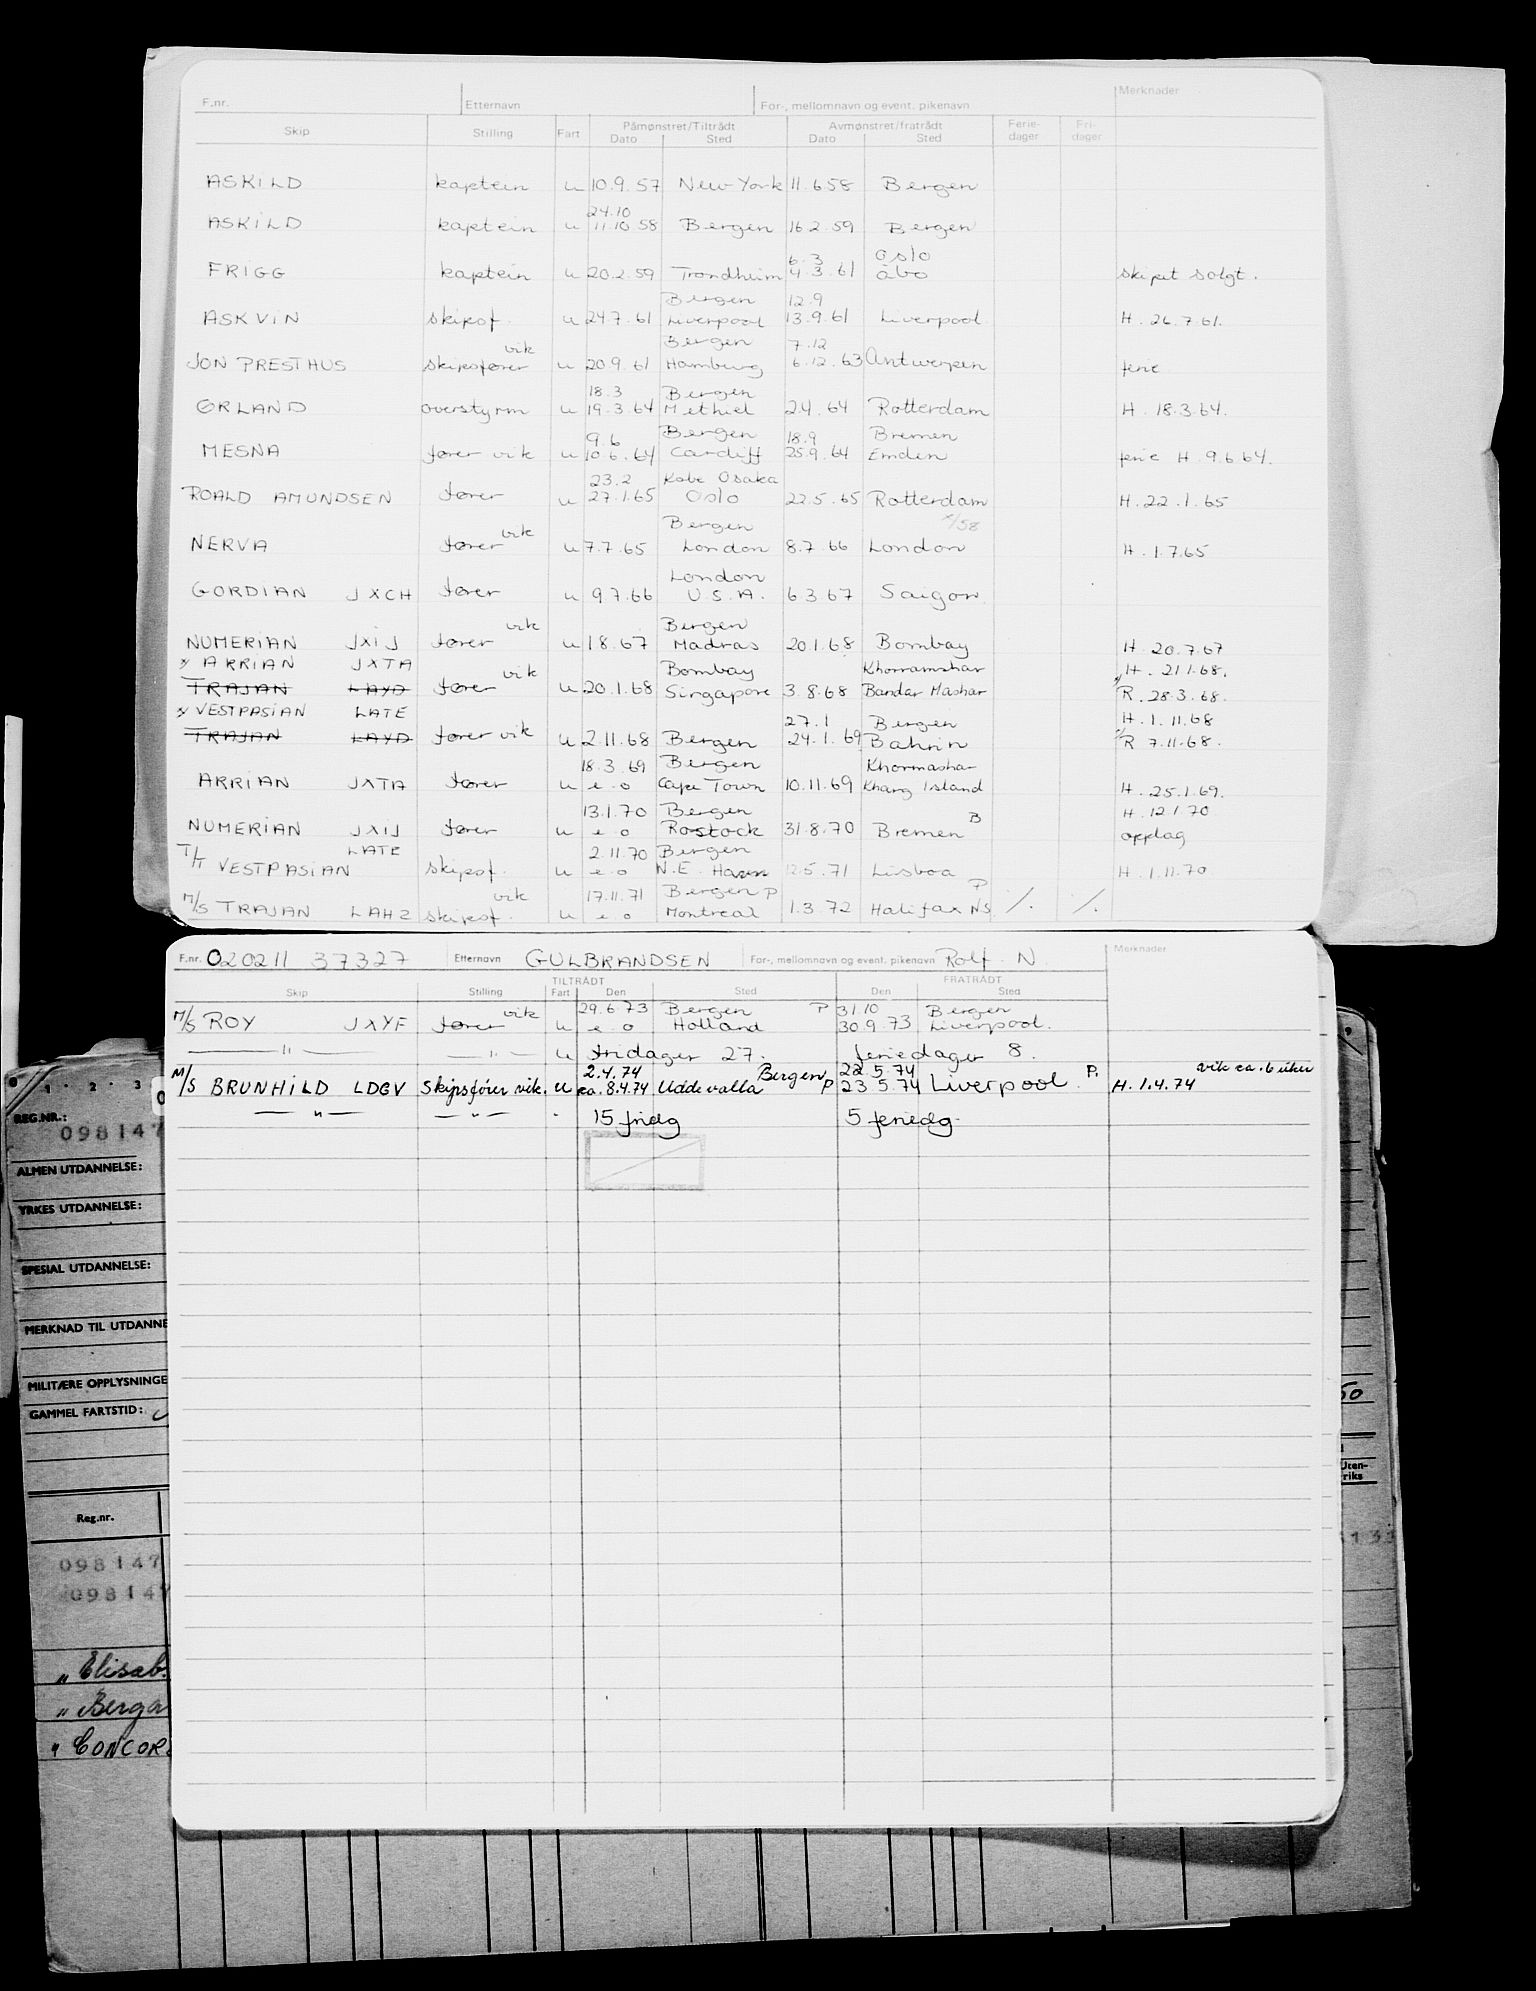 F.nr. Etternavn For-, mellomnavn og event. pikenavn Merknader
Skip Stilling Fart Påmønstret/Tiltrådt Avmønstret/fratrådt Ferie- Fri-
Dato Sted Dato Sted dager dager
ASKILD kaptein u 10.9.57 New York 11.6 58 Bergen
24.10
ASKILD kaptein u 11.10.58 Bergen 16.2.59 Bergen
6.3 Oslo
FRIGG kaptein u 20.2.59 Trondheim 4.3.61 åbo skipet solgt.
Bergen 12.9
ASKVIN skipsf. u 24.7.61 Liverpool 13.9.61 Liverpool. H. 26.7.61.
vik Bergen 7.12
JON PRESTHUS skipsfører u 20.9.61 Hamburg 6.12.63 Antwerpen ferie
18.3 Bergen
ØRLAND overstyrm u 19.3.64 Methiel 2.4.64 Rotterdam H. 18.3.64.
9.6 Bergen 18.9 Bremen
MESNA fører vik u 10.6.64 Cardiff 25.9.64 Emden ferie H. 9.6 64.
23.2 Kobe Osaka
ROALD AMUNDSEN fører u 27.1.65 Oslo 22.5.65 Rotterdam H. 22.1.65
vik Bergen x/58
NERVA fører u 7.7.65 London 8.7.66 London H. 1.7.65
London
GORDIAN JXCH fører u 9.7.66 U.S.A. 6 3 67 Saigon
vik Bergen
NUMERIAN JXIJ fører u 1 8.67 Madras 20.1.68 Bombay H. 20.7.67
ARRIAN JXTA vik Bombay Khorramshar H. 21 1.68.
TRAJAN LAYD fører u 20.1.68 Singapore 3.8.68 Bandar Mashar R. 28.3.68.
VESTPASIAN LATE 27.1 Bergen H. 1.11.68
TRAJAN LAYD fører vik u 2.11.68 Bergen 24.1.69 Bahrin R 7.11.68.
18.3.69 Bergen Khormashar
ARRIAN JXTA fører u e.o Cape Town 10.11.69 Kharg Island H. 25.1.69.
13.1.70 Bergen B H. 12 1 70
NUMERIAN JXIJ fører u e.o Rostock 31.8.70 Bremen opplag
T/T LATE 2.11.70 Bergen
VESTPASIAN skipsf. u e.o N.E. Haven 12.5.71 Lisboa H. 1.11.70
vik 17.11.71 Bergen P P
M/S TRAJAN LAHZ skipsf. u e.o Montreal 1.3.72 Halifax NS /. /.
F.nr. 020211 37327 Etternavn GULBRANDSEN For-, mellomnavn og event. pikenavn Rolf. N. Merknader
TILTRÅDT FRATRÅDT
Skip Stilling Fart Den Sted Den Sted
vik 29.6.73 Bergen P 31.10 Bergen
M/S ROY JXYF fører u e.o Holland 30.9.73 Liverpool.
—"— —"— u fridager 27. feriedager 8.
2.4.74 Bergen 22.5.74 P. vik ca. 6 uker
M/S BRUNHILD LDGV Skipsfører vik. u ca. 8.4.74 Uddevalla P 23 5.74 Liverpool. H. 1.4.74
—"— —"— " 15 fridg 5 feriedg.
1 2 3
REG.NR.:
098147
ALMEN UTDANNELSE:
YRKES UTDANNELSE:
SPESIAL UTDANNELSE:
MERKNAD TIL UTDANNE
MILITÆRE OPPLYSNINGE
GAMMEL FARTSTID:
50
Uten-
riks
Reg.nr.
098147
098147
" Elisab.
" Berga
" CONCOR